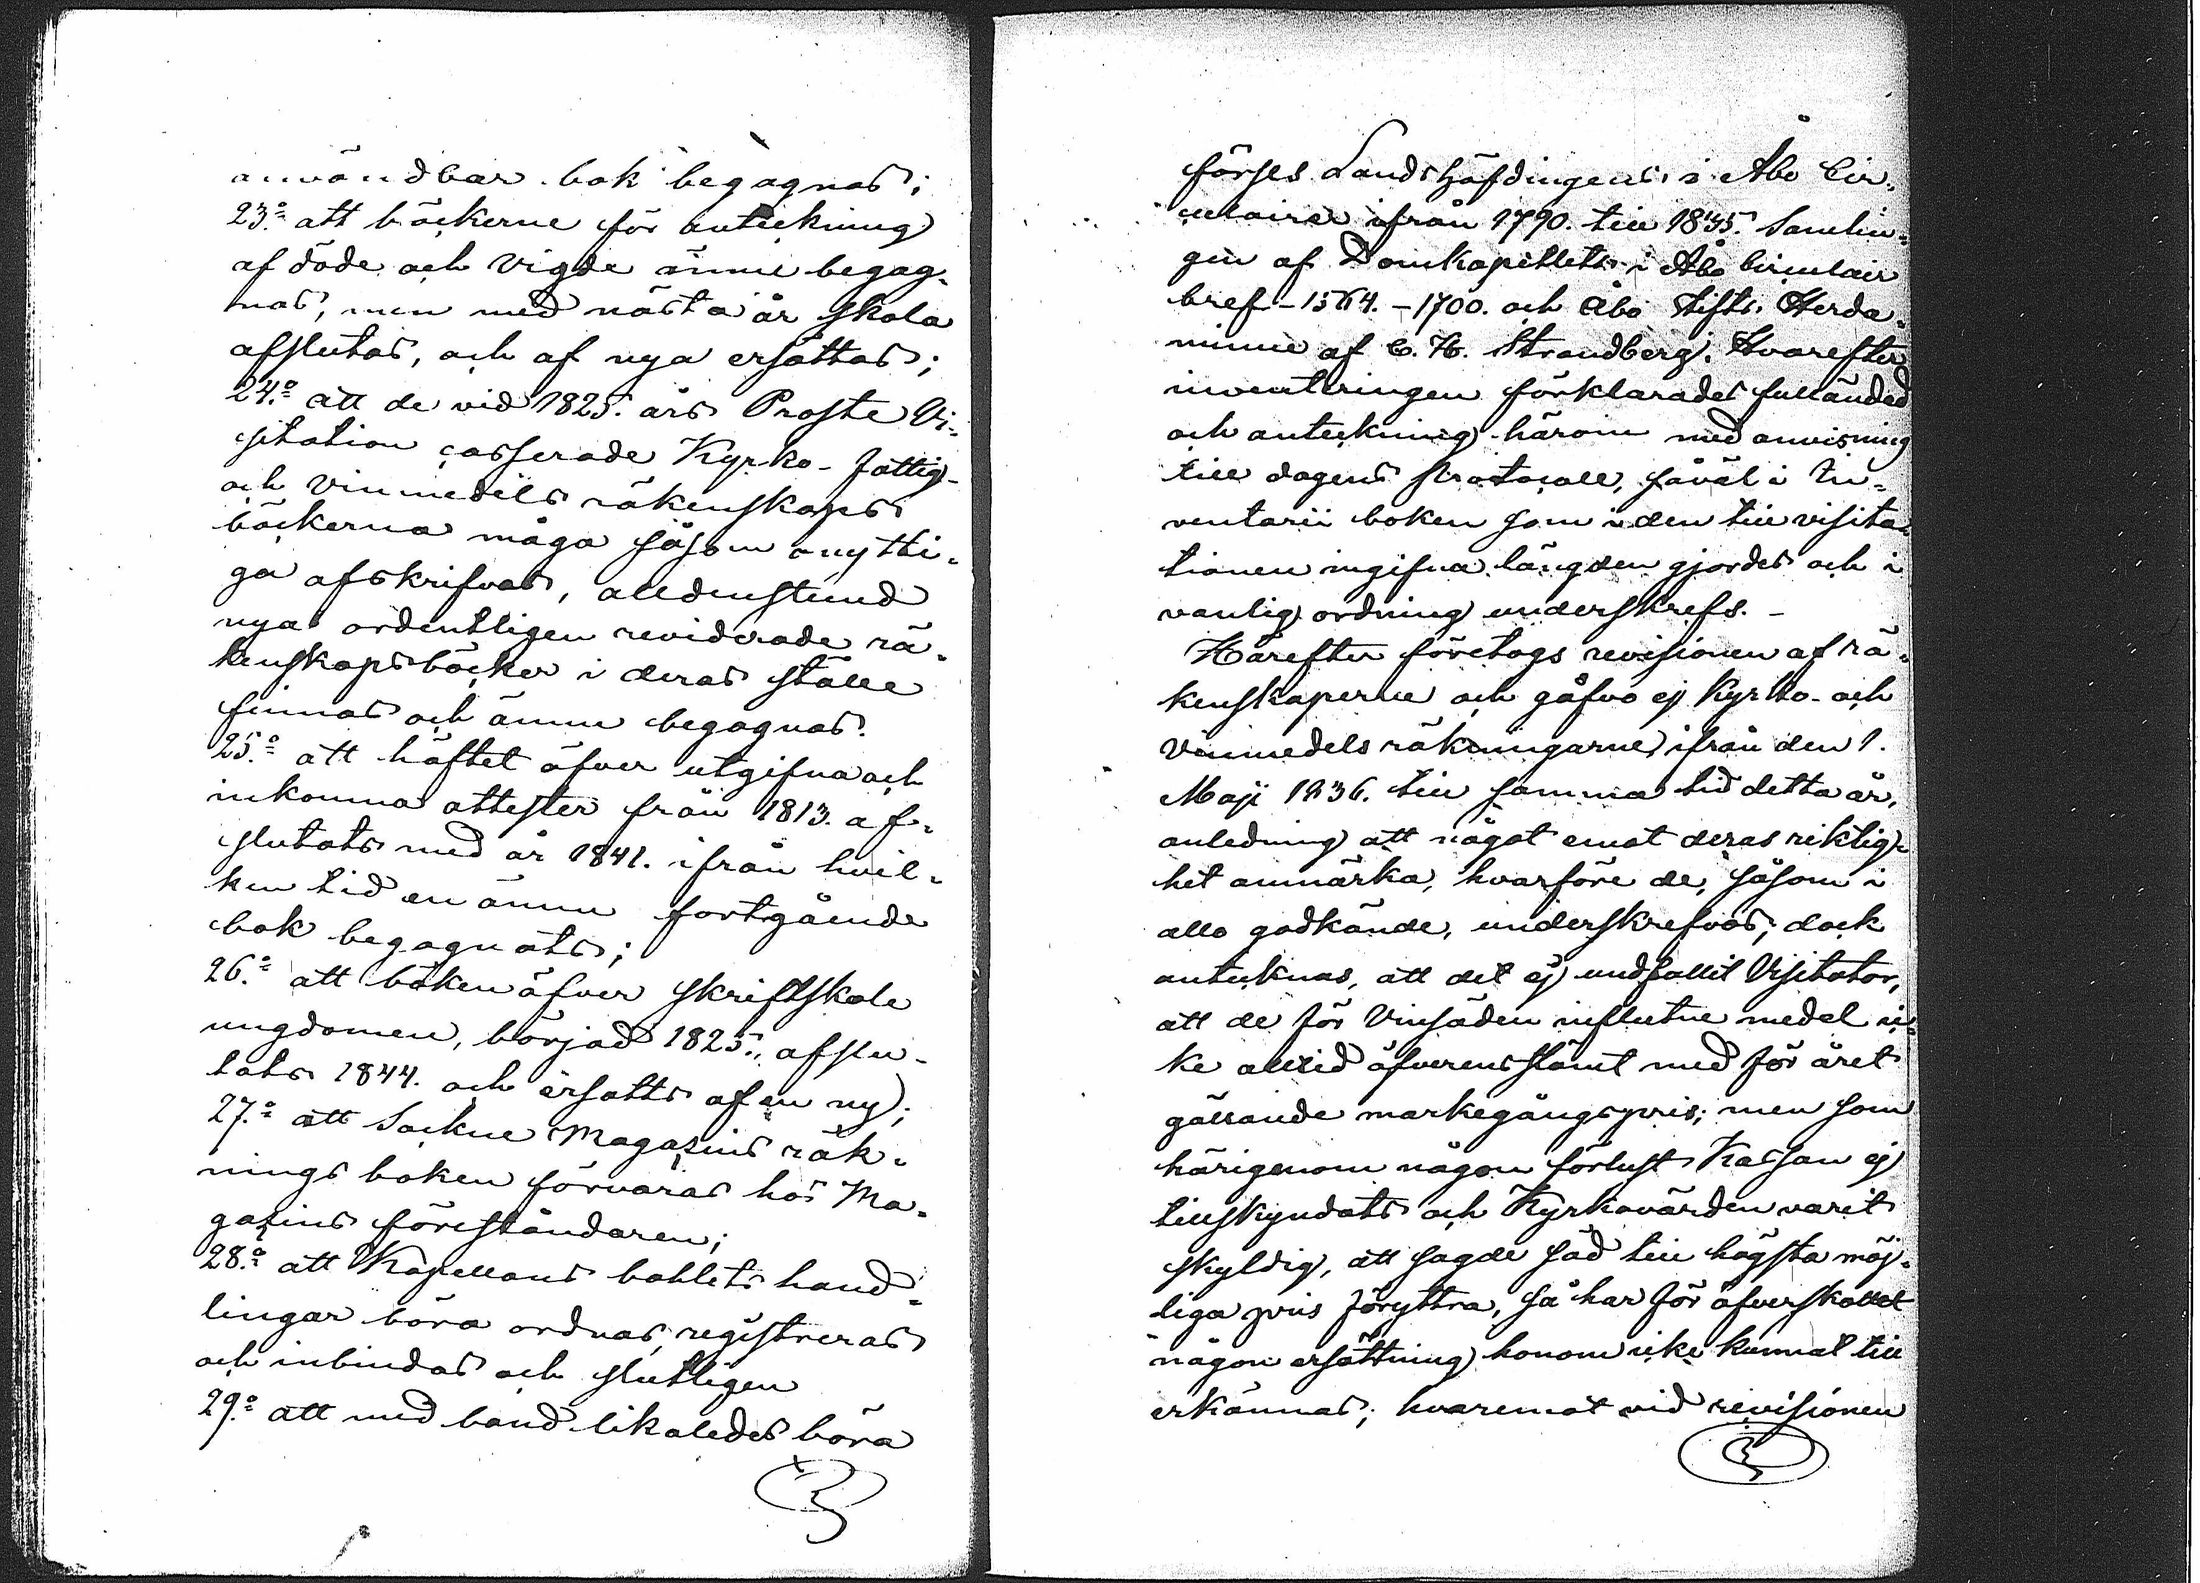 användbar bok begagnas;
23:o att böckerne för anteckning
af döde och vigde ännu begag-
nas, men med nästa år skola
afslutas, och af nya ersättas;
24:o att de vid 1825. års Proste Vi-
sitation casserade Kyrko- fattig-
och vinmedels räkenskaps
böckerna måga såsom onytti-
ga afskrifvas, alldenstund
nya ordentligen reviderade rä-
kenskapsböcker i deras ställe
finnas och ännu begagnas.
25:o att häftet öfver utgifna och
inkomna attester från 1813. af-
slutats med år 1841. ifrån hvil-
ken tid en ännu fortgående
bok begagnats;
26:o att boken öfver skriftskole
ungdomen, börjad 1825., afslu-
tats 1844. och ersatts af en ny;
27:o att Sockne Magazins räk-
nings boken förvaras hos Ma-
gazins föreståndaren;
28:o att Kapellans bohlets hand-
lingar böra ordnas, registreras
och inbindas och slutligen
29:o att med band likaledes böra
förses Landshöfdingens i Åbo Cir-
culairer ifrån 1790. till 1835. Samlin-
gen af Domkapitlets i Åbo Circulair
bref - 1564. - 1700. och Åbo Stifts Herda-
minne af C. H. Strandberg; Hvarefter
inventeringen förklarades fulländad
och anteckning härom med anvisning
till dagens protocoll, såväl i In-
ventarii boken som i den till visita-
tionen ingifna längden gjordes och i
vanlig ordning underskrefs. -
Härefter företogs revisionen af rä-
kenskaperne och gåfvo ej Kyrko- och
Vinmedels räkningarne ifrån den 1.
Maji 1836. till samma tid detta år,
anledning att något emot deras riktig-
het anmärka, hvarföre de, såsom i
allo godkände, underskrefvos; dock
antecknas, att det ej undfallit Visitator,
att de för Vinsäden influtne medel ic-
ke alltid öfverensstämt med för året
gällande markegångspris; men som
härigenom någon förlust Kassan ej
tillskyndats och Kyrkovärden varit
skyldig, att sagde säd till högsta möj-
liga pris föryttra, så har för öfverskottet
någon ersättning honom icke kunnat till
erkännas; hvaremot vid revisionen